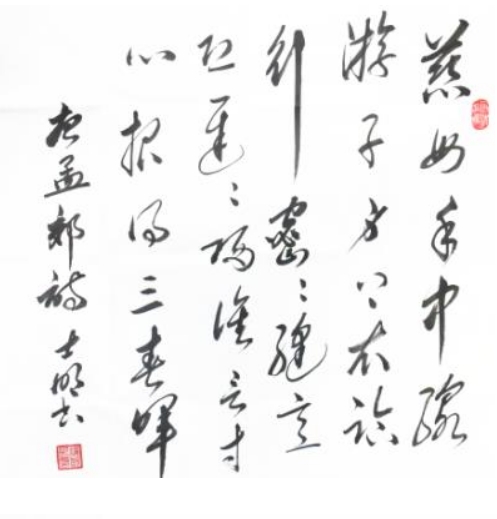 慈母手中線
游子身上衣臨
行密〻縫意
恐遲〻歸誰言寸
心报得三春暉
唐孟郊詩